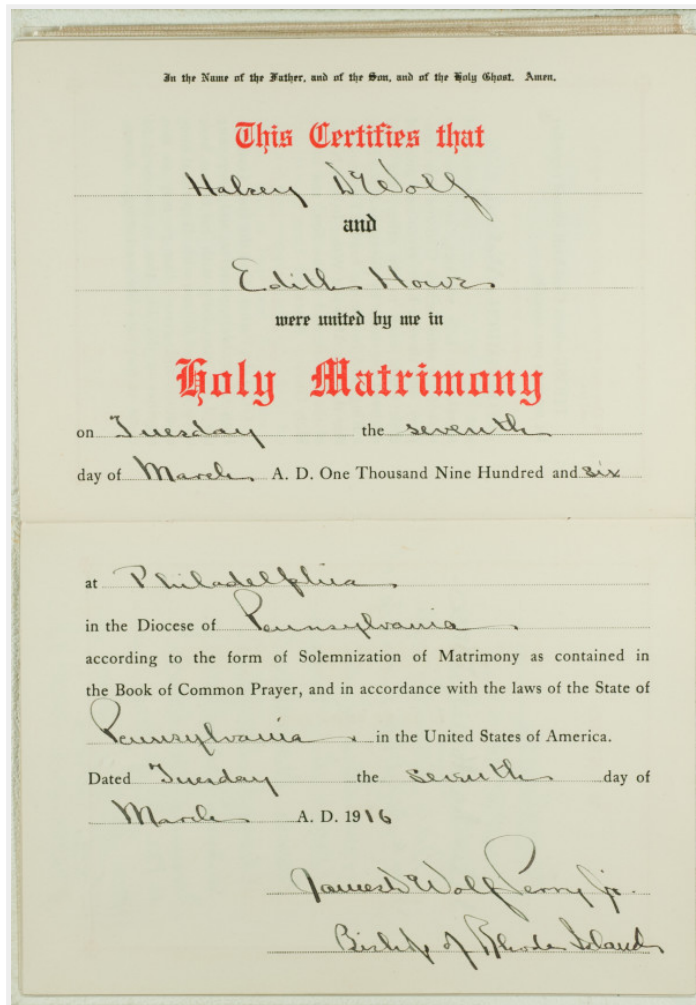 In the Name of the Father, and of the Son, and of the Holy Ghost. Amen.
This Certifies that
Halsey DeWolf
and
Edith Howe
were united by me in
Holy Matrimony
on Tuesday the seventh
day of March A. D. One Thousand Nine Hundred and six
at Philadelphia
in the Diocese of Pennsylvania
according to the form of Solemnization of Matrimony as contained in
the Book of Common Prayer, and in accordance with the laws of the State of
Pennsylvania in the United States of America.
Dated Tuesday the seventh day of
March A. D. 1916
James DeWolf Perry Jr.
Bishop of Rhode Island